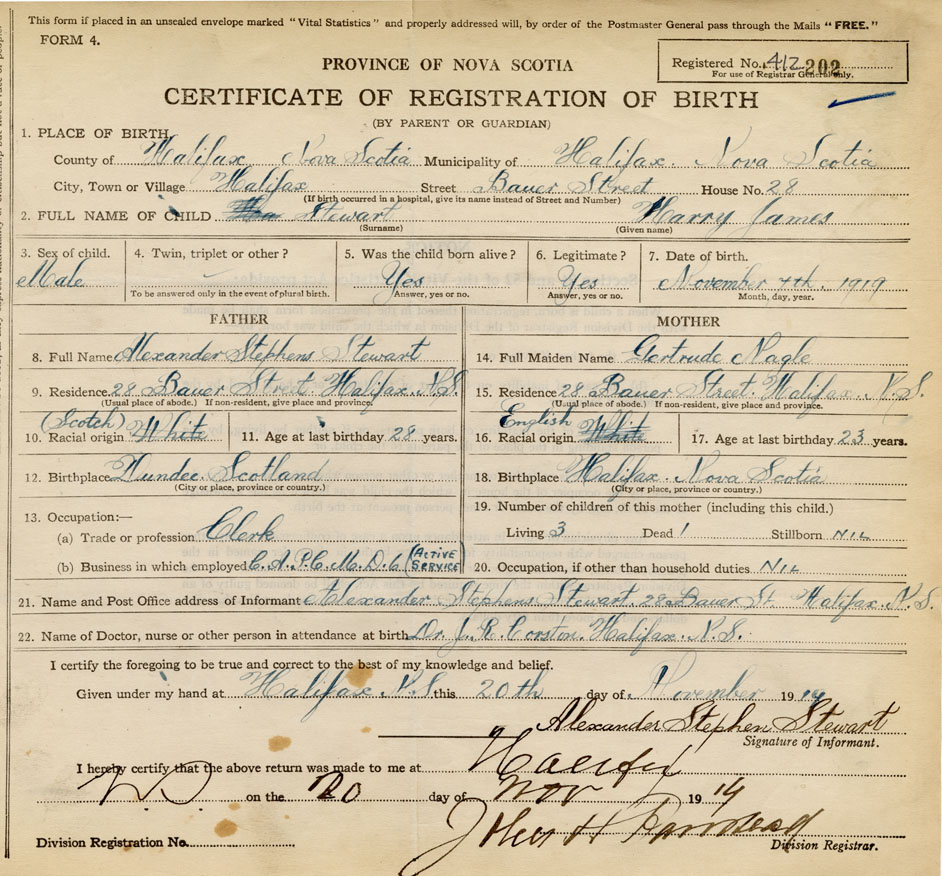 This form if placed in an unsealed envelope marked "Vital Statistics" and properly addressed will, by order of the Postmaster General pass through the Mails "FREE."
FORM 4.
Registered No. 412 202
For use of Registrar General only.
PROVINCE OF NOVA SCOTIA
CERTIFICATE OF REGISTRATION OF BIRTH
(BY PARENT OR GUARDIAN)
1. PLACE OF BIRTH
County of Halifax, Nova Scotia Municipality of Halifax. Nova Scotia
City, Town or Village Halifax Street Bauer Street House No. 28
(If birth occurred in a hospital, give its name instead of Street and Number)
2. FULL NAME OF CHILD Stewart Harry James
(Surname) (Given name)
3. Sex of child. 4. Twin, triplet or other? 5. Was the child born alive? 6. Legitimate? 7. Date of birth.
Male Yes Yes November 7th, 1919
To be answered only in the event of plural birth. Answer, yes or no. Answer, yes or no. Month, day, year.
FATHER MOTHER
8. Full Name Alexander Stephens Stewart 14. Full Maiden Name Gertrude Nagle
9. Residence 28 Bauer Street. Halifax. N.S. 15. Residence 28 Bauer Street. Halifax. N.S.
(Usual place of abode.) If non-resident, give place and province. (Usual place of abode.) If non-resident, give place and province.
(Scotch) English
10. Racial origin White 11. Age at last birthday 28 years. 16. Racial origin White 17. Age at last birthday 23 years.
12. Birthplace Dundee. Scotland 18. Birthplace Halifax. Nova Scotia
(City or place, province or country.) (City or place, province or country.)
13. Occupation:— 19. Number of children of this mother (including this child.)
(a) Trade or profession Clerk Living 3 Dead 1 Stillborn NIL
(b) Business in which employed C.A.P.C. M.D.6 (ACTIVE SERVICE) 20. Occupation, if other than household duties NIL
21. Name and Post Office address of Informant Alexander Stephens Stewart. 28 Bauer St. Halifax. N.S.
22. Name of Doctor, nurse or other person in attendance at birth Dr. J. R. Corston. Halifax. N.S.
I certify the foregoing to be true and correct to the best of my knowledge and belief.
Given under my hand at Halifax N.S. this 20th day of November 1919
Alexander Stephen Stewart
Signature of Informant.
I hereby certify that the above return was made to me at Halifax
NS on the 20 day of Nov 1919
John H
Division Registration No. Division Registrar.